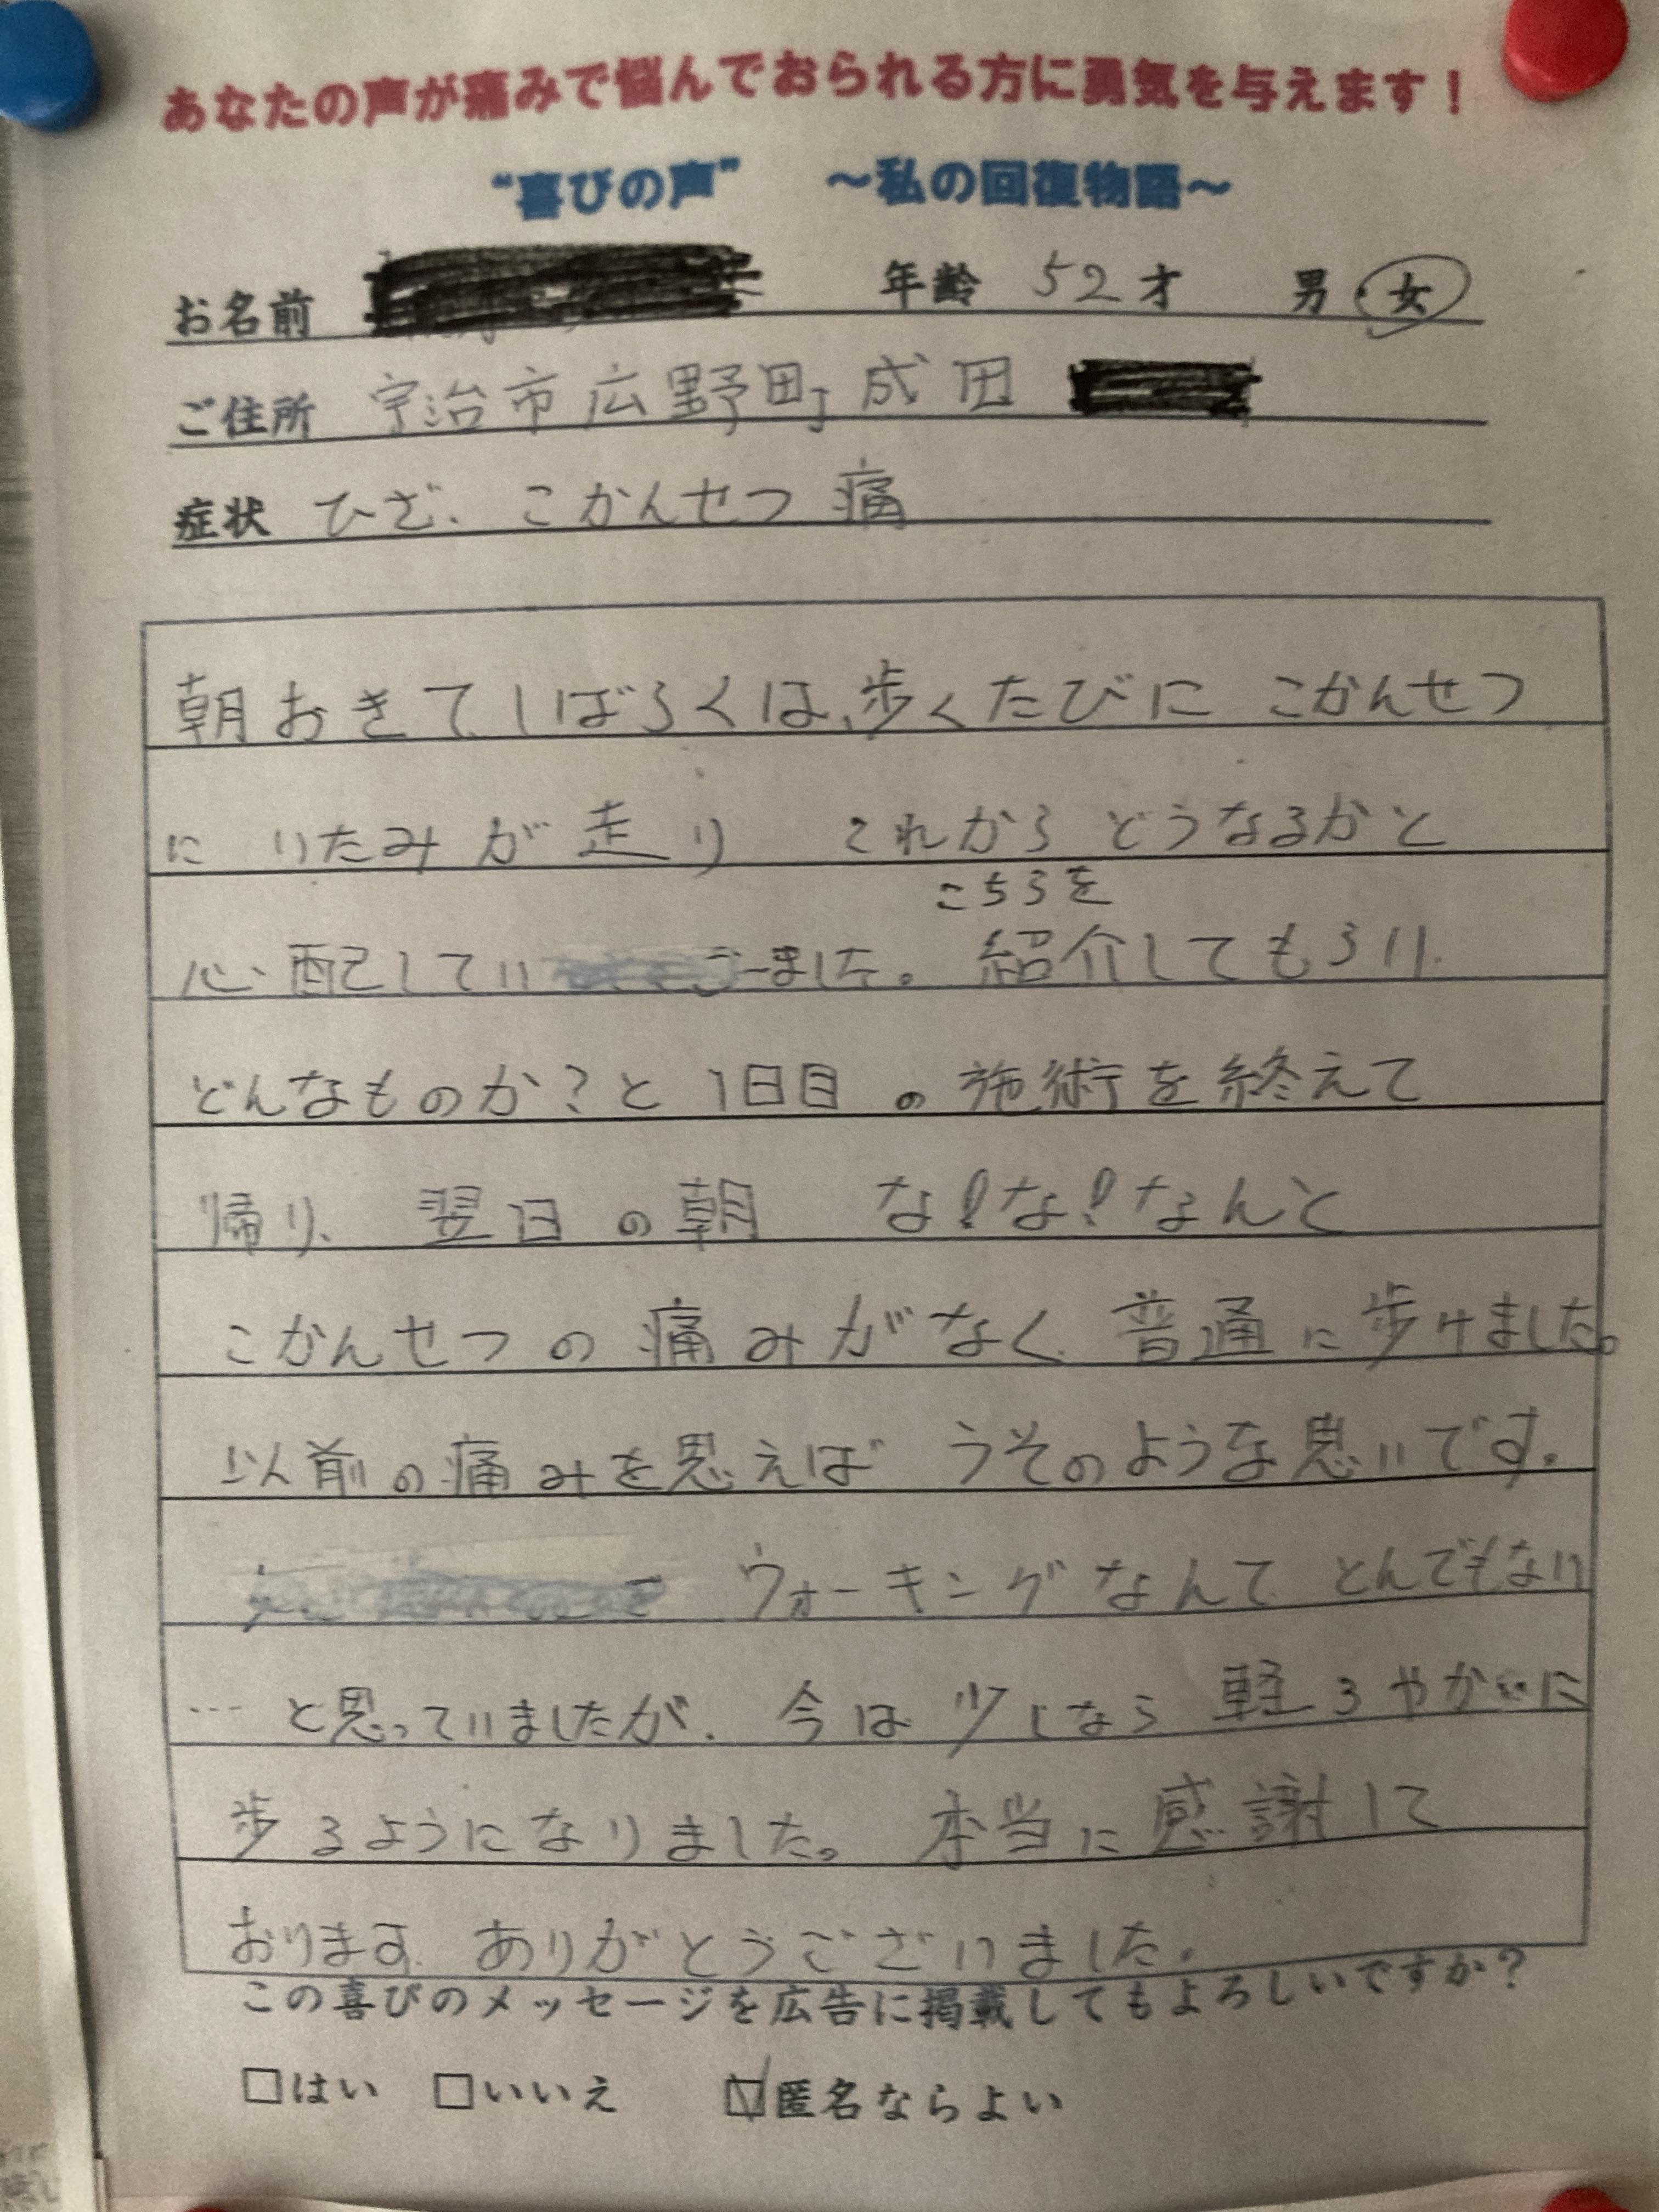 あなたの声が痛みで悩んでおられる方に勇気を与えます！
“喜びの声”　～私の回復物語～
お名前　年齢 52才　男・女
ご住所 宇治市広野町成田
症状 ひざ、こかんせつ痛
朝おきてしばらくは、歩くたびに こかんせつ
に いたみが走り これから どうなるかと
こちらを
心配してい ました。 紹介してもらい
どんなものか？と 1日目の施術を終えて
帰り、 翌日の朝 な！な！なんと
こかんせつの痛みがなく 普通に歩けました。
以前の痛みを思えば うそのような思いです。
ウォーキングなんて とんでもない
… と思っていましたが、 今は少しなら 軽ろやかに
歩るようになりました。 本当に感謝して
おります。ありがとうございました。
この喜びのメッセージを広告に掲載してもよろしいですか？
□はい □いいえ ☑匿名ならよい